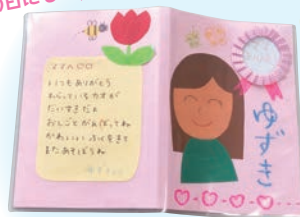 の日に
ママへ♡♡
いつもありがとう
わらっているカオが
だいすきだよ
おしごとがんばってね
かわいいふくをきて
またあそぼうね
ゆずき